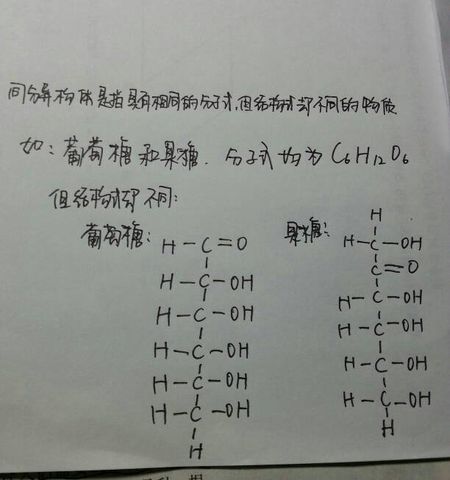 同分异构体是指具有相同的分子式,但结构式却不同的物质
如：葡萄糖和果糖.分子式均为C6H12O6
但结构式却不同：
葡萄糖：
H-C=O
H-C-OH
H-C-OH
H-C-OH
H-C-OH
H-C-OH
H
果糖：
H
H-C-OH
C=O
H-C-OH
H-C-OH
H-C-OH
H-C-OH
H